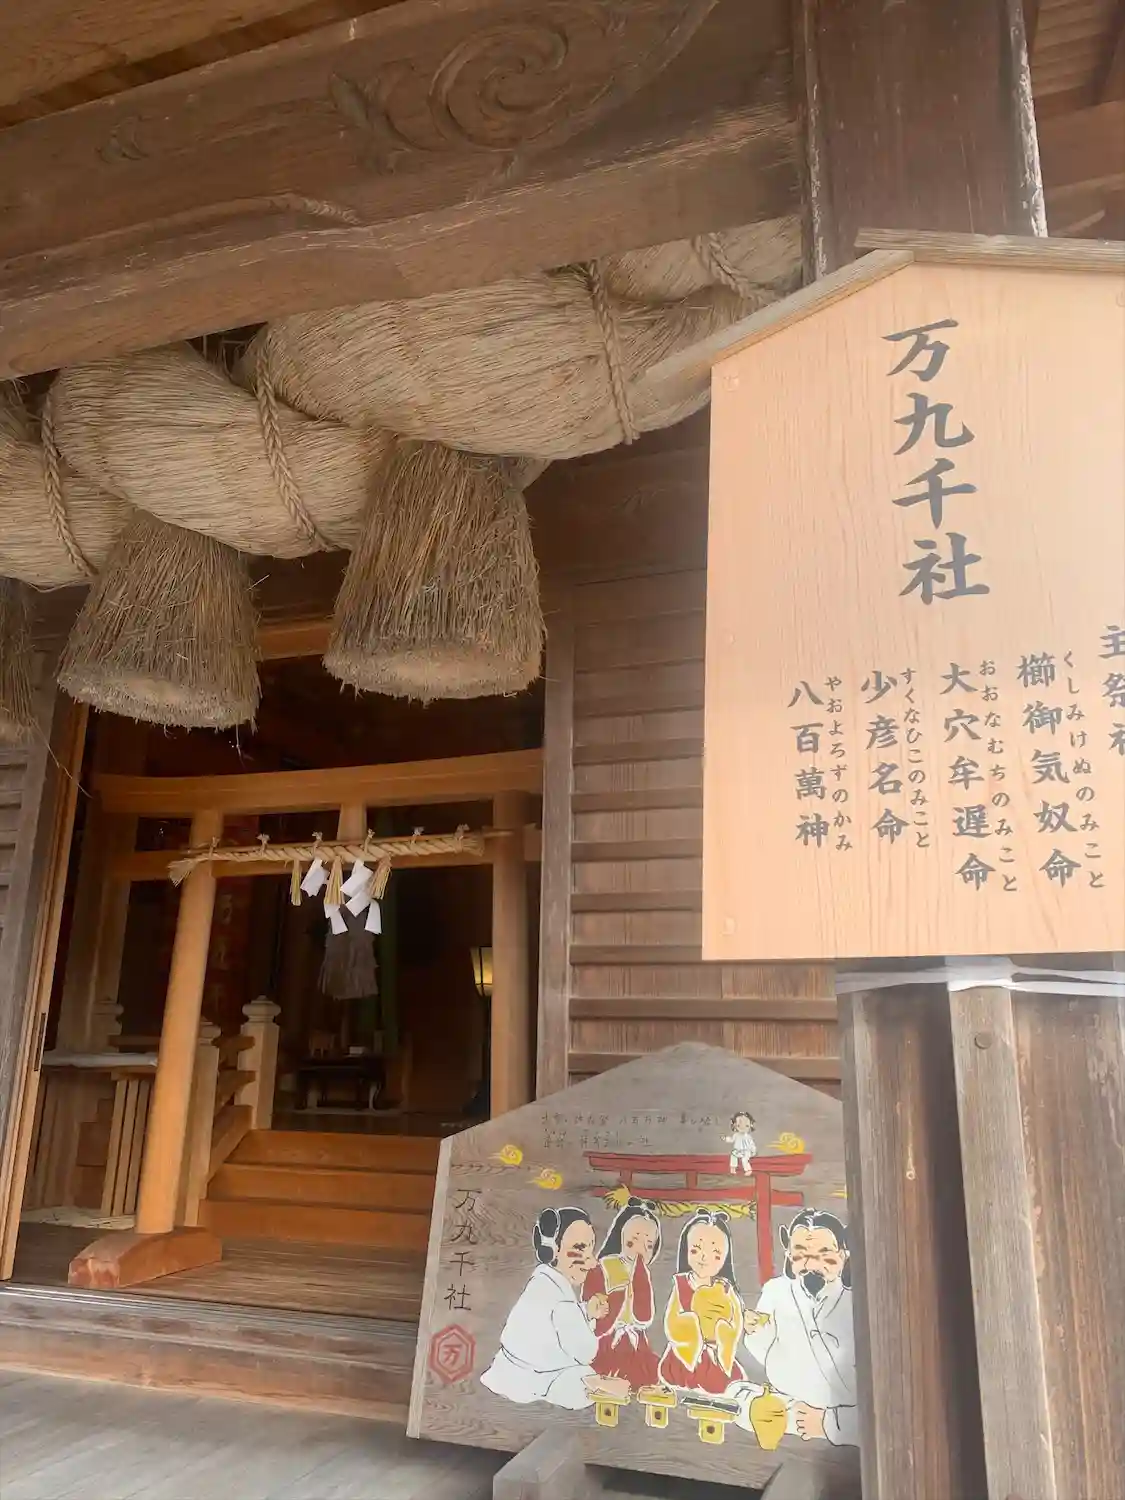 万九千社
主祭神
櫛御気奴命
くしみけぬのみこと
大穴牟遅命
おおなむちのみこと
少彦名命
すくなひこのみこと
八百萬神
やおよろずのかみ
万九千社
万